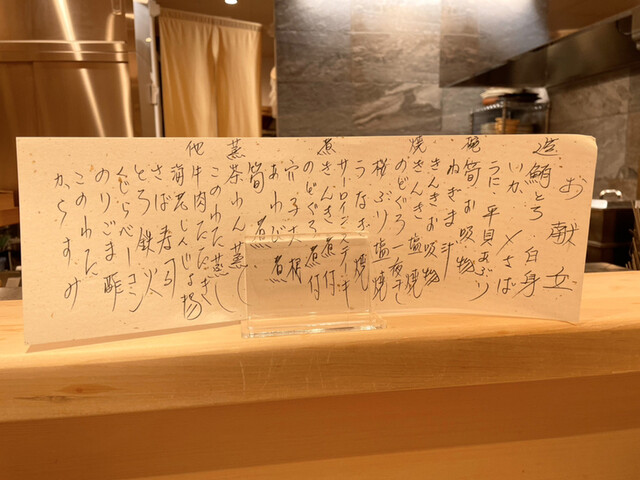 お献立
造 鮪とろ 白身
いか 〆さば
うに 平貝あぶり
椀 筍お吸物
ねぎま汁
きんきお吸物
焼 きんき塩焼
のどぐろ一夜干し
桜ぶり塩焼
うなぎ 焼
サーロインステーキ
煮 きんき煮付
のどぐろ煮付
穴子大根
あわび煮
筍 煮
蒸 茶わん蒸し
このわた蒸し
他 牛肉たたき
海老しんじょ揚
さば寿司
とろ鉄火
くじらベーコン
のりごま酢
このわた
からすみ